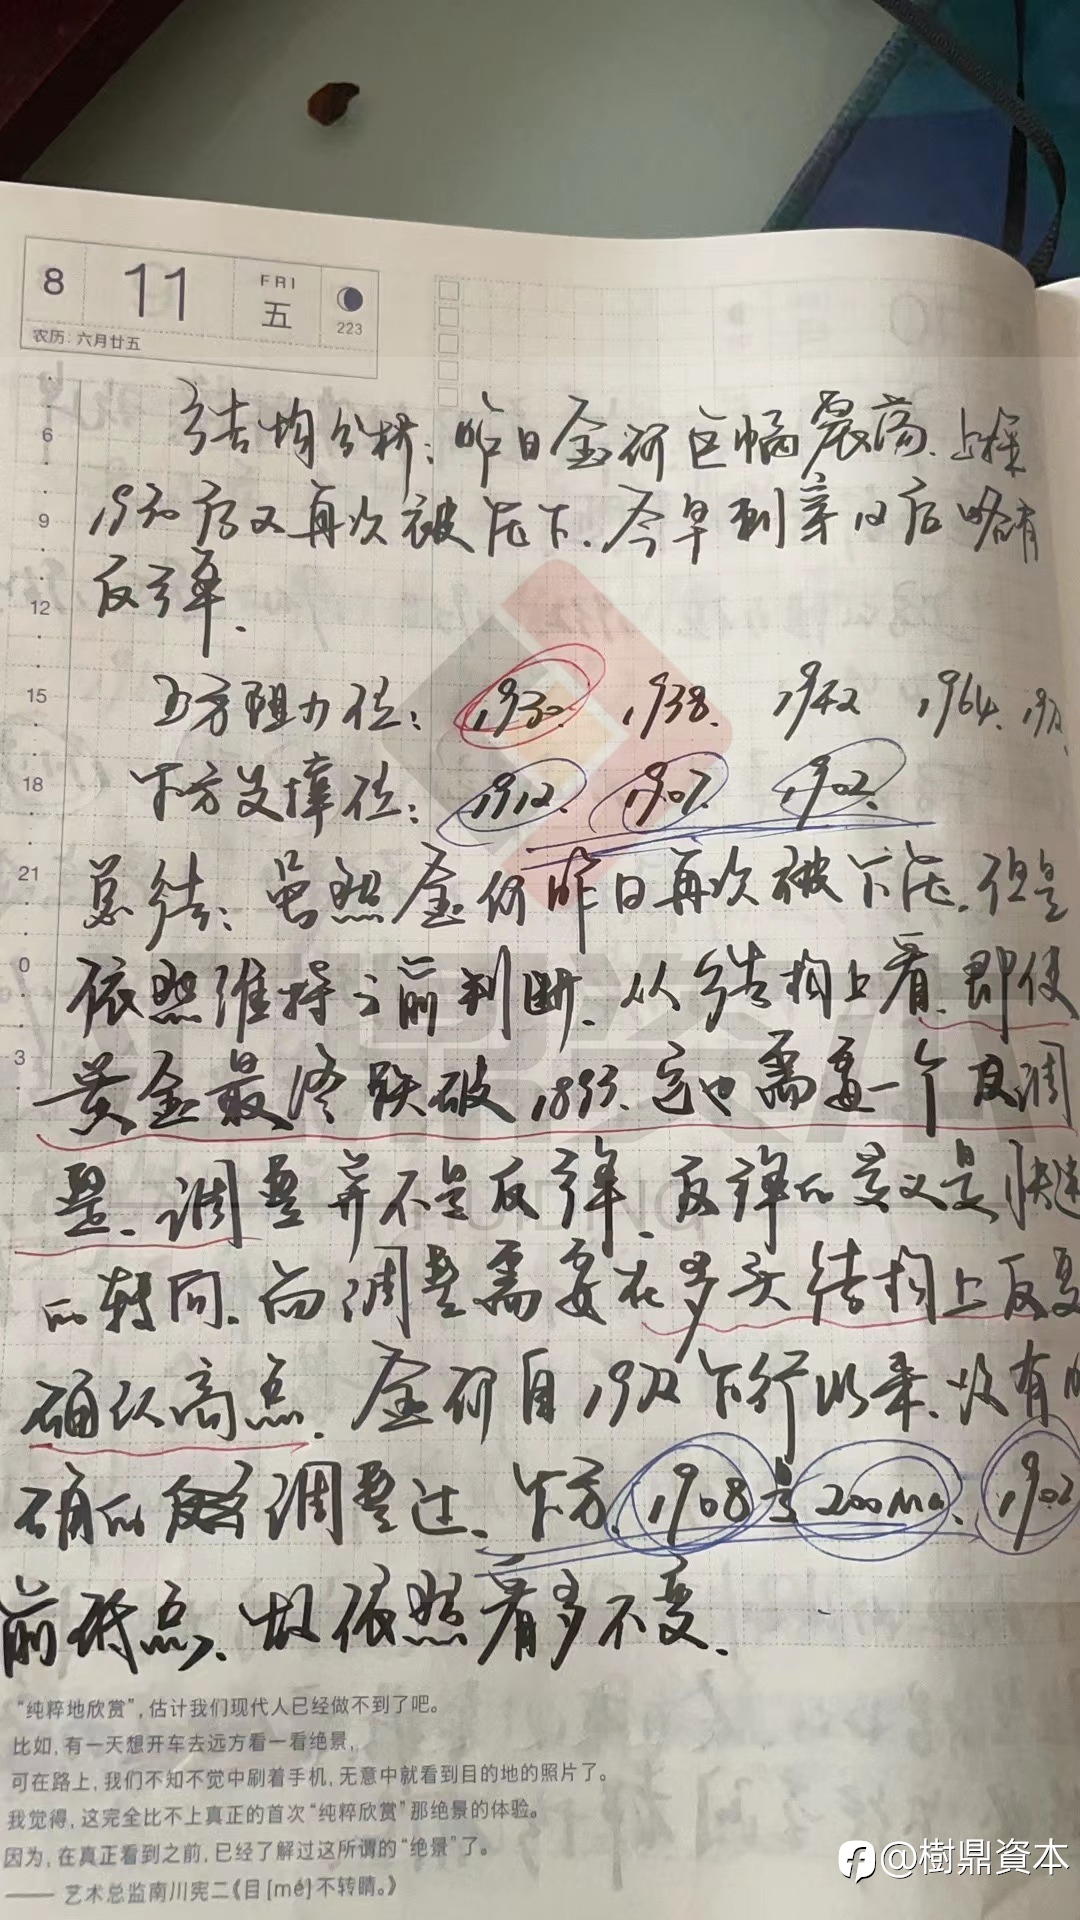 8 11 FRI 五 223
农历：六月廿五
6
9
12
15
18
21
0
3
结构分析：昨日金价巨幅震荡.上探
1930后又再次被砸下.今早到亚欧后略有
反弹.
上方阻力位：1930. 1938. 1942 1964.
下方支撑位：1912. 1907. 1902.
总结：虽然金价昨日再次被下砸.但是
依照维持之前判断.从结构上看.即使
黄金最终跌破1893.它也需要一个反调
整.调整并不是反弹.反弹的意义是快速
的转向.而调整需要在多头结构上反复
确认高点.金价自 下行以来.没有
确的 调整过.下方.1908与200ma.1902
前 点.故依照看多不变.
“纯粹地欣赏”，估计我们现代人已经做不到了吧。
比如，有一天想开车去远方看一看绝景，
可在路上，我们不知不觉中刷着手机，无意中就看到目的地的照片了。
我觉得，这完全比不上真正的首次“纯粹欣赏”那绝景的体验。
因为，在真正看到之前，已经了解过这所谓的“绝景”了。
—— 艺术总监南川宪二《目[mé]不转睛。》
@樹鼎資本